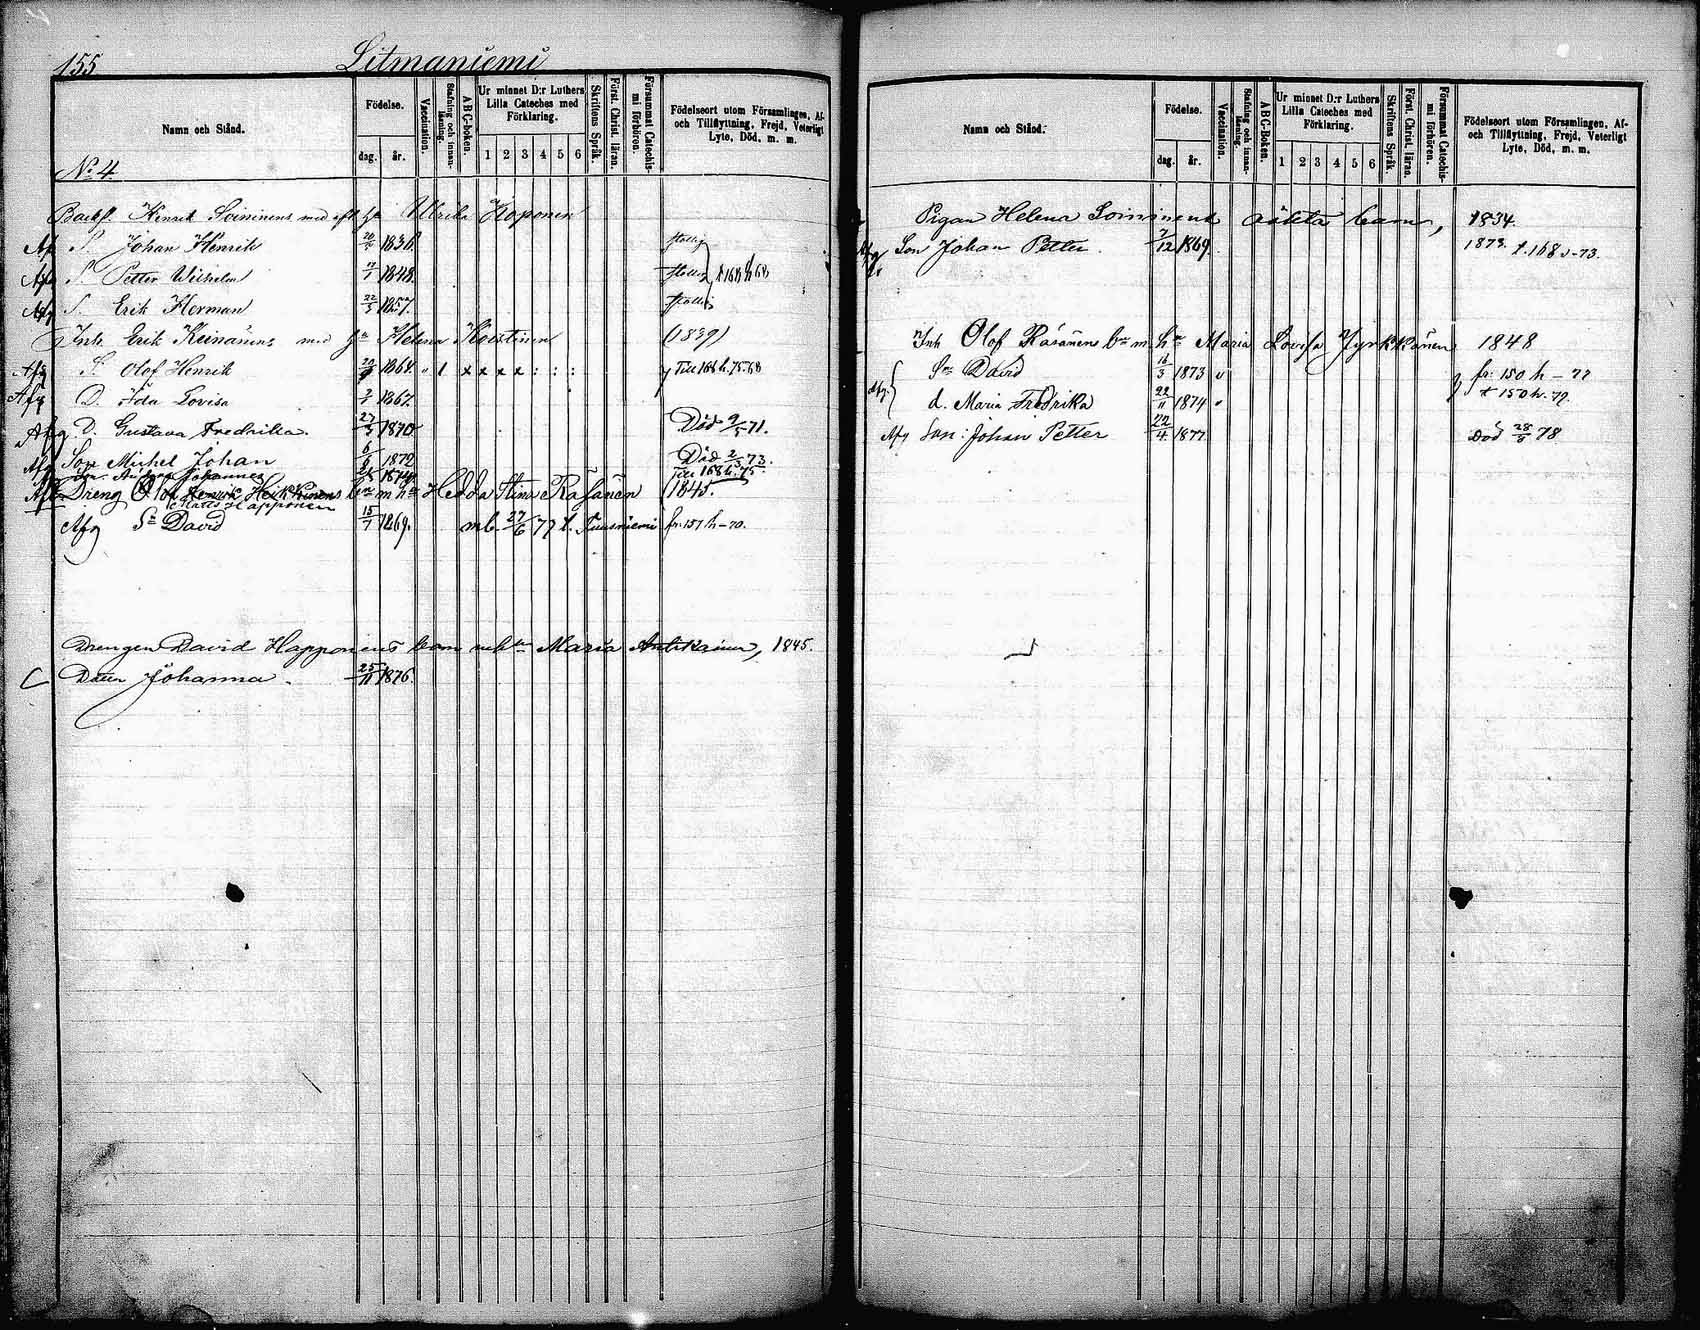 155 Litmaniemi
Namn och Stånd.
Födelse.
dag. år.
Vaccination.
Stafning och innan-läsning.
ABC-boken.
Ur minnet D:r Luthers Lilla Cateches med Förklaring.
1 2 3 4 5 6
Skriftens Språk.
Först. Christ. läran.
Försummat Catechismi förhören.
Födelseort utom Församlingen, Af- och Tillflyttning, Frejd, Veterligt Lyte, Död, m. m.
No 4
Henrik Soininens med Ulrika Koponen
S. Johan Henrik 1836
S. Petter Wilhelm 1848
S. Erik Herman 22/3 1857.
Inh. Erik Keinänens med hu Helena Koistinen (1839)
Afg S. Olof Henrik 1864 1 x x x x : : : Till 168
Afg D. Ida Lovisa 1867.
Afg D. Gustava Fredrika. 27/3 1870 Död 9/5 71.
Afg Son Michel Johan 1872 Död 2/3 73.
Johannes
Dreng Olof Henrik Heikkinens bn m hu Hedda Stina Räsänen 1845.
Matts Happonen
Afg Sn David 15/7 1869. mb. 27/6 77 t. Tuusniemi fr. 157 h – 70.
Drengen David Happonens barn m hu Maria Antikainen, 1845.
Dotter Johanna. 25/11 1876.
Namn och Stånd.
Födelse.
dag. år.
Vaccination.
Stafning och innan-läsning.
ABC-Boken.
Ur minnet D:r Luthers Lilla Cateches med Förklaring.
1 2 3 4 5 6
Skriftens Språk.
Först Christ. läran.
Försummat Catechismi förhören.
Födelseort utom Församlingen, Af- och Tillflyttning, Frejd, Veterligt Lyte, Död, m. m.
Pigan Helena Soininens oäkta barn, 1834.
Son Johan Petter. 7/12 1869. 1873. t. 168 – 73.
Inh Olof Räsänens bn m. hu Maria Lovisa Jyrkkänen 1848
Sn David 16/3 1873 fr. 150 h – 77
Afg. d. Maria Fredrika 22/11 1874 t 150 h. 79.
Afg Son: Johan Petter 22/4 1877 Död 28/5 78